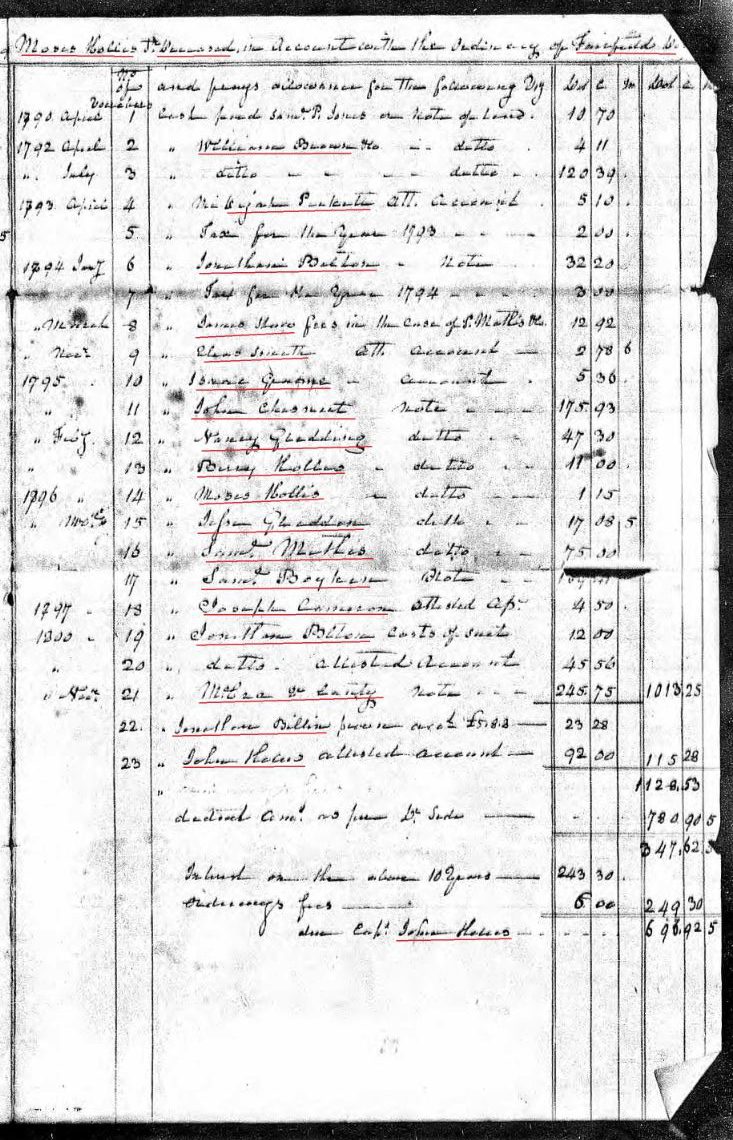 Moses Hollis Sr. Deceased, in Account with the Ordinary of Fairfield
No of Vouchers and prays allowance for the following Viz Dol C M Dol C M
1790 April 1 Cash paid Saml. P. Jones on Note of hand. 10 70
1792 April 2 " William Brown & Co " ditto 4 11
" July 3 " ditto " " ditto 120 39
1793 April 4 " Att. Account 5 10
5 " Tax for the Year 1793 2 00
1794 Jany 6 " Jonathan Belton " Note 32 20
7 " Tax for the Year 1794 3 00
" March 8 " James fees in the Case of P. Mathis & Co. 12 92
" Novr. 9 " Smith Att. Account 2 78 6
1795 10 " Isaac " account 5 36
" 11 " John Chesnut Note 175 93
" Feby. 12 " Nancy Gladding ditto 47 30
" 13 " Berry Hollis " ditto 11 00
1796 " 14 " Moses Hollis " ditto 1 15
" 15 " Jesse Gladden ditto 17 08 5
16 " Saml. Mathis ditto 75 00
17 " Saml. Boyken Note
1797 18 " Joseph Cameron attested Apt. 4 50
1800 " 19 " Jonathan Belton Costs of suit 12 00
" 20 " ditto. attested Account 45 56
" Novr. 21 " McCra & Canty Note 245 75 1013 25
22. " Jonathan Beltin proven acct. £5.8.8 23 28
23 " John Hollis attested account 92 00 115 28
" 1128.53
deduct Amt. as per Dr. Side 780 90 5
347.62 5
Interest on the above 10 Years 243 30
Ordinarys fees 6 00 249 30
due Capt. John Hollis 696.92 5